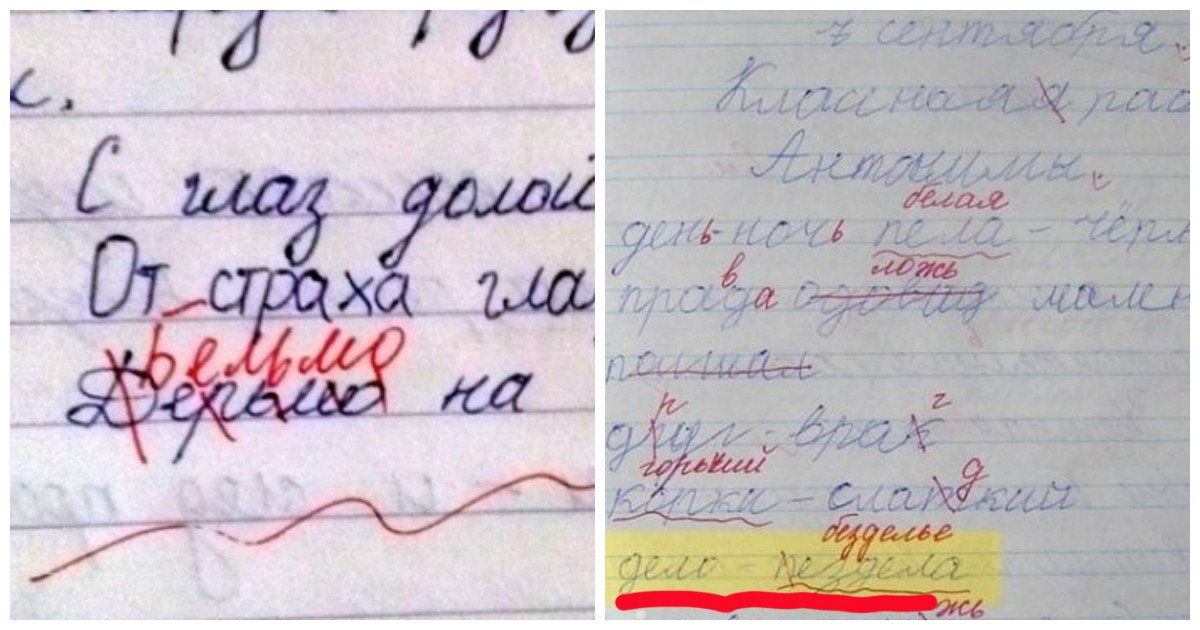 с.
С глаз долой
От страха гла
Бельмо
Дерьмо на
7 сентября.
Класнаая раб
Антонимы.
белая
день-ночь пела - чёрн
ложь
правда мален
р г
друг - врах
горький д
кёрки - слапкий
безделье
дело - пездела
жь